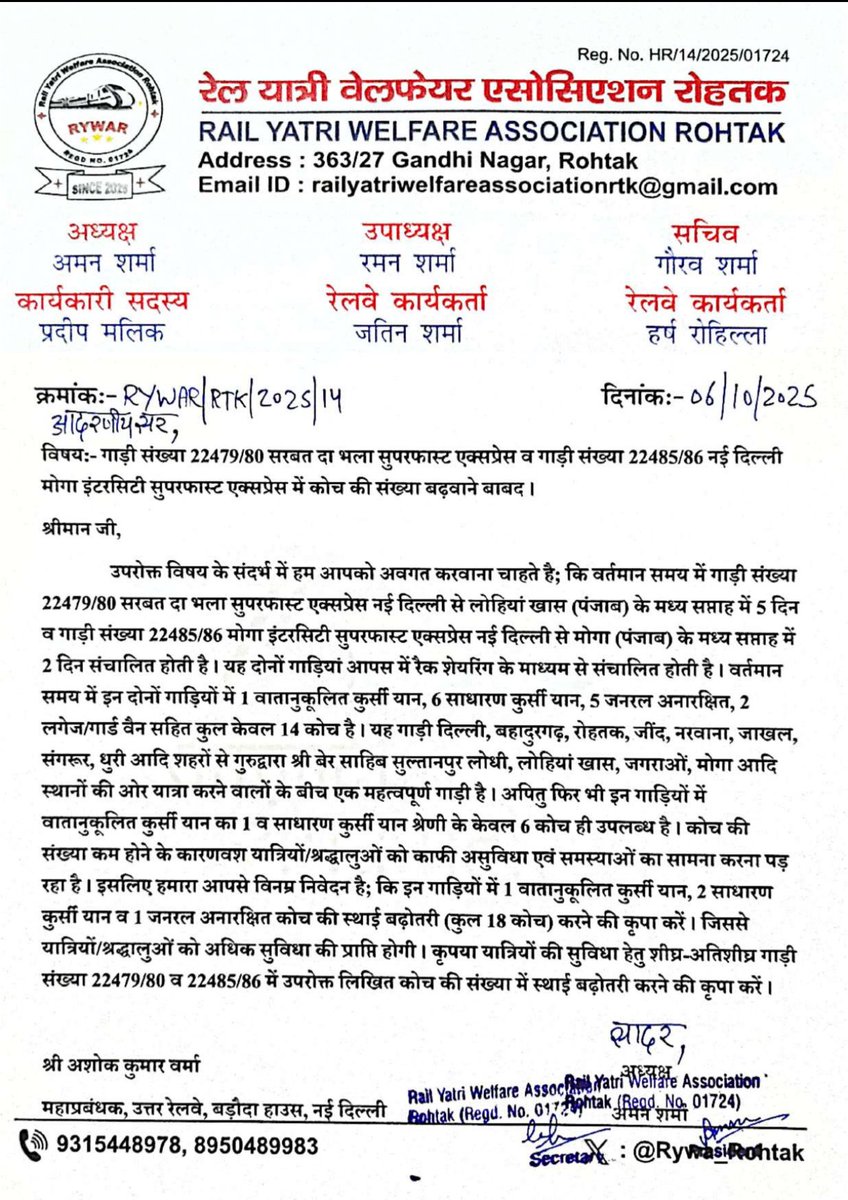 Reg. No. HR/14/2025/01724
Rail Yatri Welfare Association Rohtak
RYWAR
REGD NO. 01724
SINCE 2025
रेल यात्री वेलफेयर एसोसिएशन रोहतक
RAIL YATRI WELFARE ASSOCIATION ROHTAK
Address : 363/27 Gandhi Nagar, Rohtak
Email ID : railyatriwelfareassociationrtk@gmail.com
अध्यक्ष उपाध्यक्ष सचिव
अमन शर्मा रमन शर्मा गौरव शर्मा
कार्यकारी सदस्य रेलवे कार्यकर्ता रेलवे कार्यकर्ता
प्रदीप मलिक जतिन शर्मा हर्ष रोहिल्ला
क्रमांकः- RYWAR/RTK/2025/14 दिनांकः- 06/10/2025
आदरणीय सर,
विषयः- गाड़ी संख्या 22479/80 सरबत दा भला सुपरफास्ट एक्सप्रेस व गाड़ी संख्या 22485/86 नई दिल्ली
मोगा इंटरसिटी सुपरफास्ट एक्सप्रेस में कोच की संख्या बढ़वाने बाबद।
श्रीमान जी,
उपरोक्त विषय के संदर्भ में हम आपको अवगत करवाना चाहते है; कि वर्तमान समय में गाड़ी संख्या
22479/80 सरबत दा भला सुपरफास्ट एक्सप्रेस नई दिल्ली से लोहियां खास (पंजाब) के मध्य सप्ताह में 5 दिन
व गाड़ी संख्या 22485/86 मोगा इंटरसिटी सुपरफास्ट एक्सप्रेस नई दिल्ली से मोगा (पंजाब) के मध्य सप्ताह में
2 दिन संचालित होती है। यह दोनों गाड़ियां आपस में रैक शेयरिंग के माध्यम से संचालित होती है। वर्तमान
समय में इन दोनों गाड़ियों में 1 वातानुकूलित कुर्सी यान, 6 साधारण कुर्सी यान, 5 जनरल अनारक्षित, 2
लगेज/गार्ड वैन सहित कुल केवल 14 कोच है। यह गाड़ी दिल्ली, बहादुरगढ़, रोहतक, जींद, नरवाना, जाखल,
संगरूर, धुरी आदि शहरों से गुरुद्वारा श्री बेर साहिब सुल्तानपुर लोधी, लोहियां खास, जगराओं, मोगा आदि
स्थानों की ओर यात्रा करने वालों के बीच एक महत्वपूर्ण गाड़ी है। अपितु फिर भी इन गाड़ियों में
वातानुकूलित कुर्सी यान का 1 व साधारण कुर्सी यान श्रेणी के केवल 6 कोच ही उपलब्ध है। कोच की
संख्या कम होने के कारणवश यात्रियों/श्रद्धालुओं को काफी असुविधा एवं समस्याओं का सामना करना पड़
रहा है। इसलिए हमारा आपसे विनम्र निवेदन है; कि इन गाड़ियों में 1 वातानुकूलित कुर्सी यान, 2 साधारण
कुर्सी यान व 1 जनरल अनारक्षित कोच की स्थाई बढ़ोतरी (कुल 18 कोच) करने की कृपा करें। जिससे
यात्रियों/श्रद्धालुओं को अधिक सुविधा की प्राप्ति होगी। कृपया यात्रियों की सुविधा हेतु शीघ्र-अतिशीघ्र गाड़ी
संख्या 22479/80 व 22485/86 में उपरोक्त लिखित कोच की संख्या में स्थाई बढ़ोतरी करने की कृपा करें।
सादर,
अध्यक्ष
श्री अशोक कुमार वर्मा
Rail Yatri Welfare Association Rail Yatri Welfare Association
Rohtak (Regd. No. 01724) Rohtak (Regd. No. 01724)
महाप्रबंधक, उत्तर रेलवे, बड़ौदा हाउस, नई दिल्ली
अमन शर्मा
9315448978, 8950489983
Secretary President
X : @Rywa_Rohtak